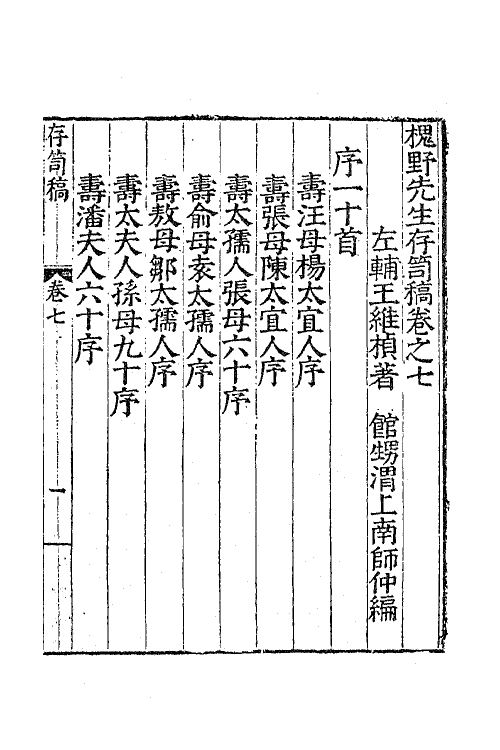 槐野先生存笥稿卷之七
左輔王維楨著 館甥渭上南師仲編
序一十首
壽汪母楊太宜人序
壽張母陳太宜人序
壽太孺人張母六十序
壽俞母袁太孺人序
壽敖母鄒太孺人序
壽太夫人孫母九十序
壽潘夫人六十序
存笥稿 卷七 一